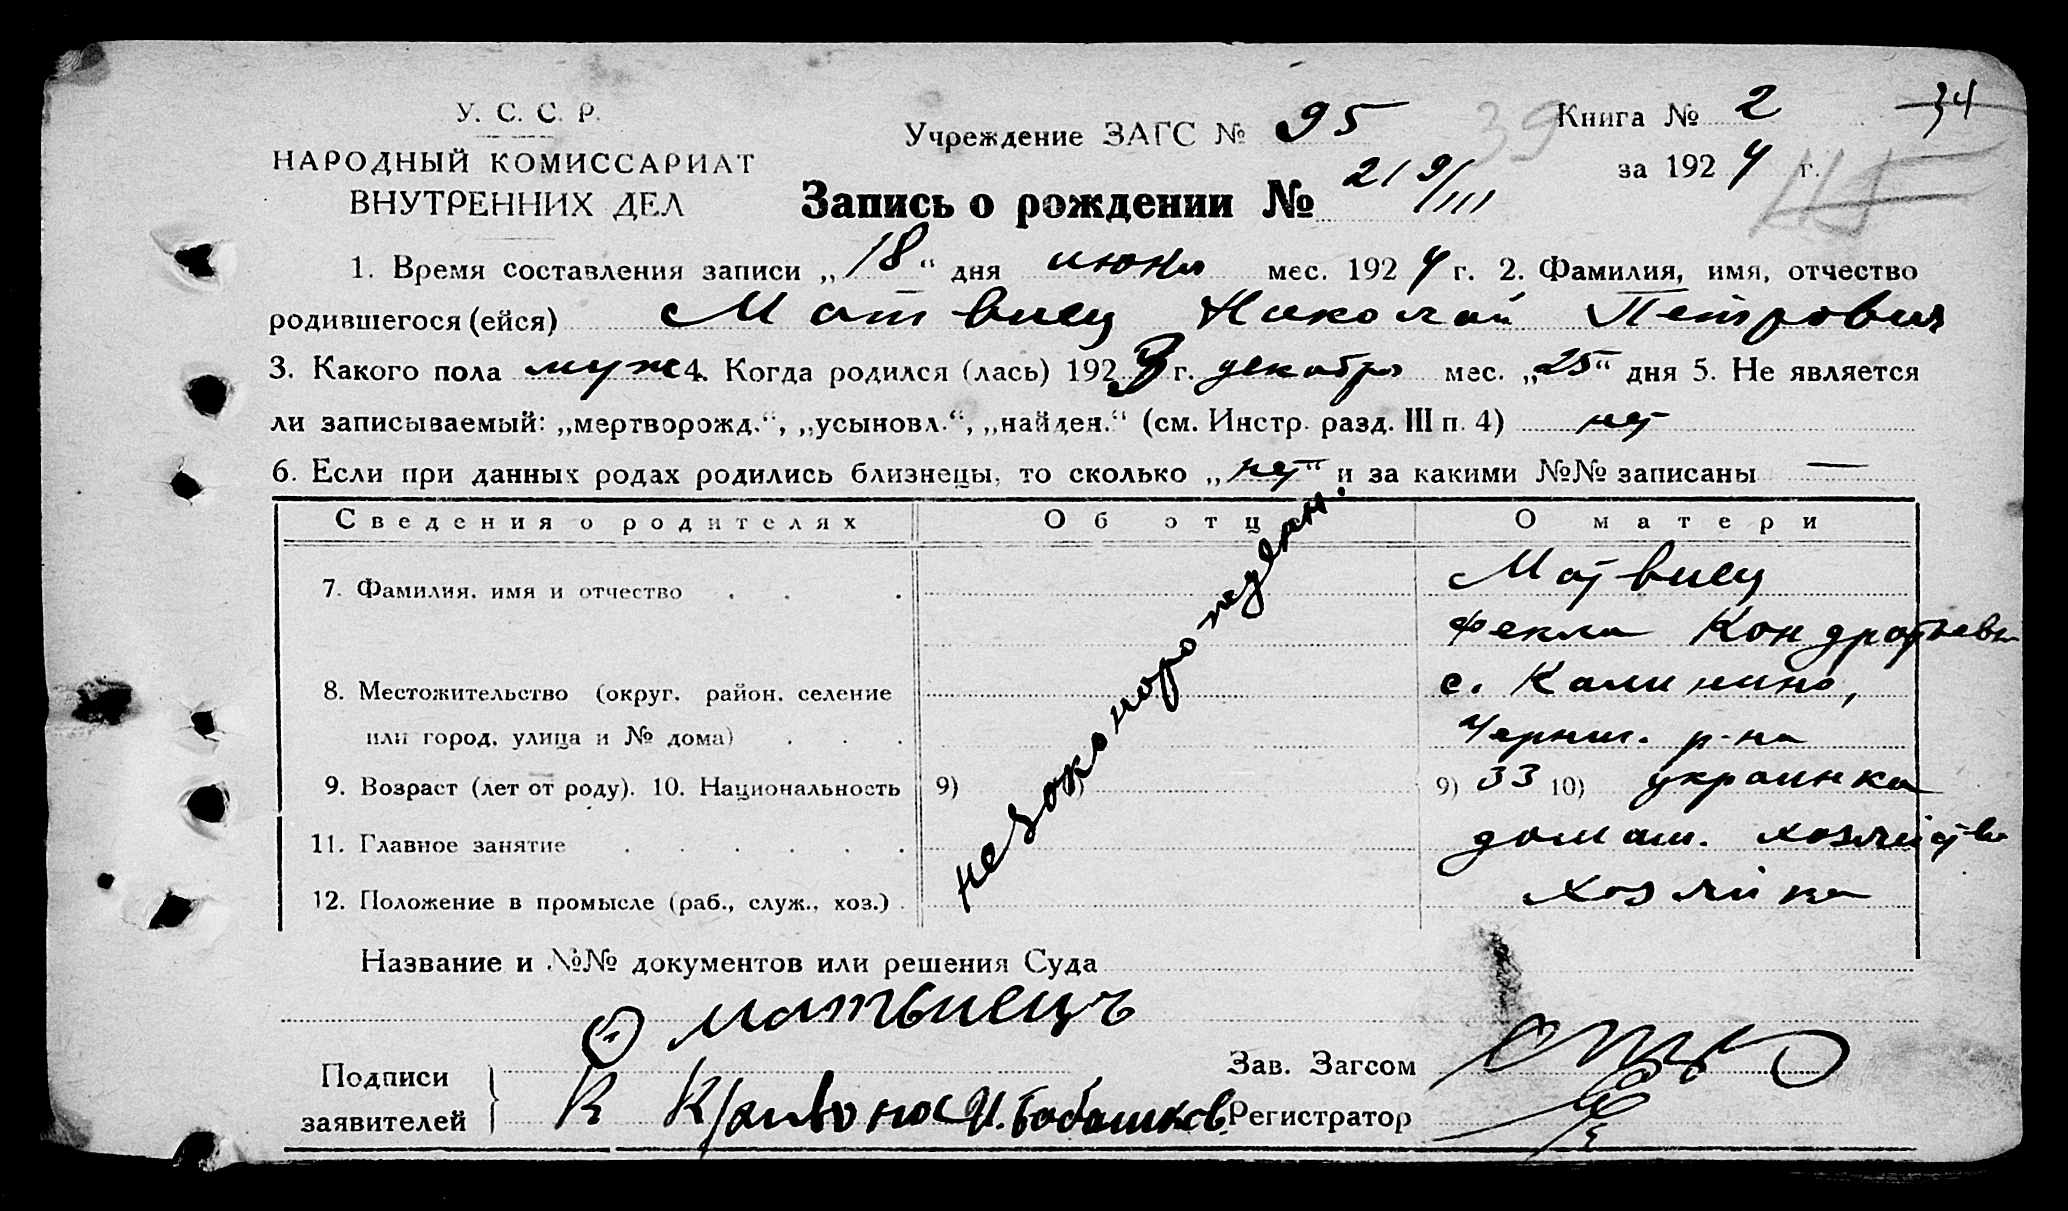 У. С. С. Р.
НАРОДНЫЙ КОМИССАРИАТ
ВНУТРЕННИХ ДЕЛ
Учреждение ЗАГС № 95
39
Книга № 2
34
за 1924 г.
115
Запись о рождении № 219/III
1. Время составления записи „18“ дня июня мес. 1924 г. 2. Фамилия, имя, отчество
родившегося (ейся) Матвиец Николай Петрович
3. Какого пола муж 4. Когда родился (лась) 1923 г. декабря мес. „25“ дня 5. Не является
ли записываемый: „мертворожд.“, „усыновл.“, „найден.“ (см. Инстр. разд. III п. 4) нет
6. Если при данных родах родились близнецы, то сколько „нет“ и за какими №№ записаны —
Сведения о родителях Об отц О матери
незаконорожден.
7. Фамилия, имя и отчество . . . Матвиец
Фекла Кондратьевна
8. Местожительство (округ, район, селение с. Калинино,
или город, улица и № дома) . . . Черниг. р-на
9. Возраст (лет от роду). 10. Национальность 9) 9) 33 10) украинка
11. Главное занятие . . . . . . домаш. хозяйство
12. Положение в промысле (раб., служ., хоз.) . хозяйка
Название и №№ документов или решения Суда
матвиецъ
Подписи
заявителей
И. Бабашков.
Зав. Загсом
Регистратор